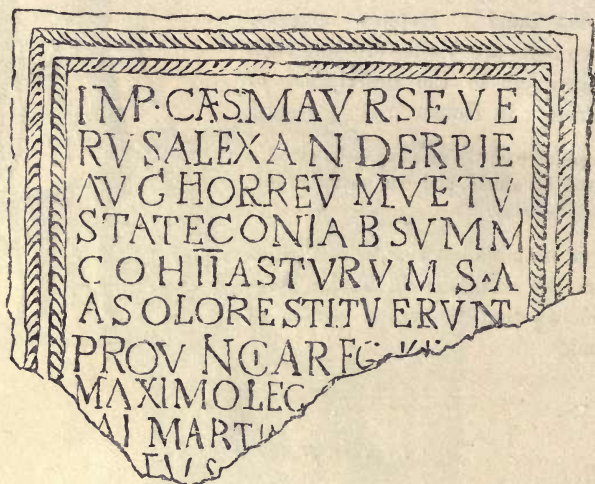 IMP·CÆSMAVRSEVE
RVSALEXANDERPIE
AVGHORREVMVETV
STATECONIABSVMM
COHIIASTVRVMS·A
ASOLORESTITVERVNT
PROVNCIAREG
MAXIMOLEG
MARTI